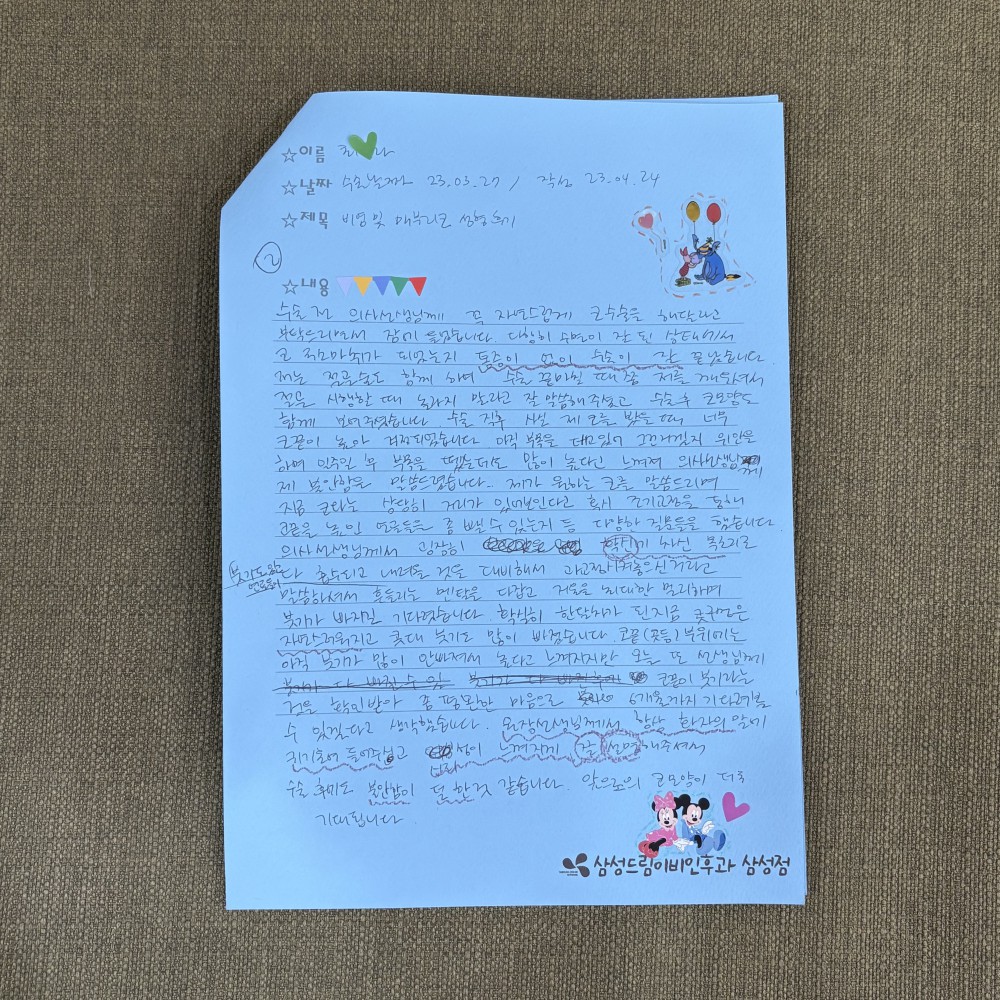 ☆이름 최 라
☆날짜 수술날짜 23.03.27 / 작성 23.04.24
☆제목 비염 및 매부리코 성형후기
②
☆내용
수술 전 의사선생님께 꼭 자연스럽게 코수술을 해달라고
부탁드리면서 잠에 들었습니다. 다행히 수면이 잘 된 상태에서
코 마취가 되었는지 통증이 없이 수술이 잘 끝났습니다
저는 절골술도 함께 하며 수술 끝마칠 때쯤 저를 깨우셔서
절골 시행한 때 놀라지 말라고 잘 말씀해주셨고 수술 후 코모양도
함께 보여주셨습니다. 수술 직후 사실 제 코를 봤을 때 너무
코끝이 높아 걱정되었습니다 아직 부목을 대고있어 그런거겠지 위안을
하며 일주일 후 부목을 뗐는데도 많이 높다고 느껴져 의사선생님께
제 불안함을 말씀드렸습니다. 제가 원하는 코를 말씀드리며
지금 코와는 상당히 거리가 있어보인다고 혹시 조기교정을 통해
코끝을 높인 연골들을 좀 뺄 수 있는지 등 다양한 질문들을 했습니다.
의사선생님께서 굉장히 확신에 차신 목소리로
붓기도있고 연골이 다 흡수되고 내려올 것을 대비해서 과교정하셔놓으신거라고
말씀하셔서 흔들리는 멘탈은 다잡고 거울을 최대한 멀리하며
붓기가 빠지길 기다렸습니다. 확실히 한달차가 된 지금 콧구멍은
자연스러워지고 콧대 붓기도 많이 빠졌습니다. 코끝(콧등) 부위에는
아직 붓기가 많이 안빠져서 높다고 느껴지지만 오늘 또 선생님께
코끝이 붓기라는
것을 확인받아 좀 평온한 마음으로 6개월까지 기다려볼
수 있겠다고 생각했습니다. 원장선생님께서 항상 환자의 말에
귀기울여 들어주시고 느껴지게 잘 설명해주셔서
수술 후에도 불안감이 덜 한것 같습니다. 앞으로의 코모양이 더욱
기대됩니다.
삼성드림이비인후과 삼성점